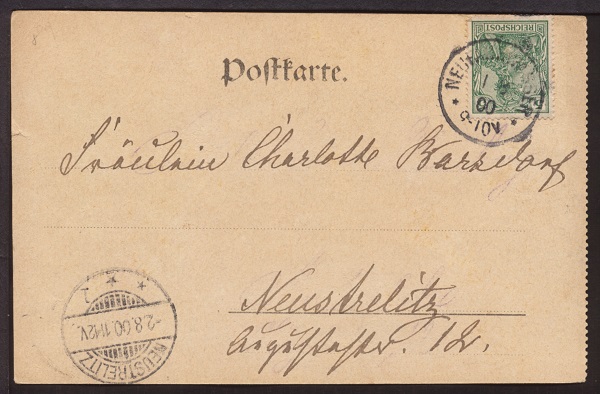 REICHSPOST
Postkarte.
00
9-10V
Fräulein Charlotte Barsdorf
Neustrelitz
Auguststr. 12.
NEUSTRELITZ
1
-2.8.00.11-12V.